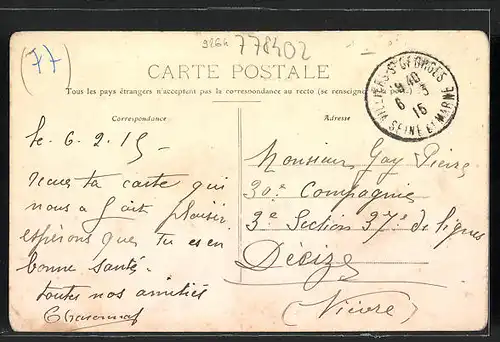 (77)
3264
778402
CARTE POSTALE
Tous les pays étrangers n'acceptent pas la correspondance au recto (se renseigner
Correspondance
Adresse
VILLIERS-ST-GEORGES
9 40
6 3
15
SEINE ET MARNE
le 6.2.15-
recue ta carte qui
nous a fait plaisir
espérons que tu es en
bonne santé.
toutes nos amitiés
Monsieur Gay Pierre
30e Compagnie
3e Section 37e de lignes
Décize
(Nièvre)